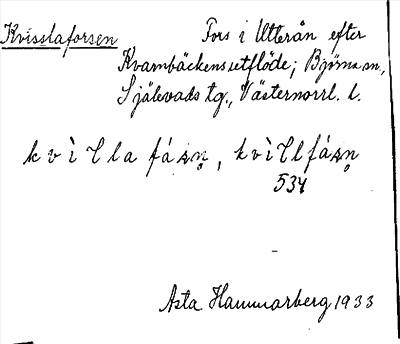 Kvisslaforsen Fors i Utterån efter
Kvarnbäckens utflöde; Björna sn,
Själevads tg., Västernorrl. l.
kvìlla fásn̥, kvìllfásn̥
534
Asta Hammarberg 1933